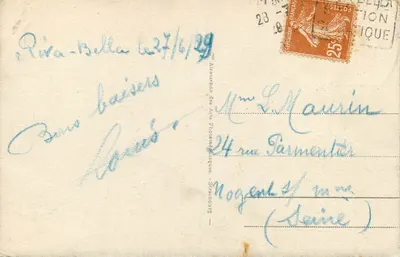 Riva-Bella le 27/6/29
Bons baisers
Louis.
Mme L. Maurin
24 rue Parmentier
Nogent s/ Mne
(Seine)
25
20
BELLA
TION
IQUE